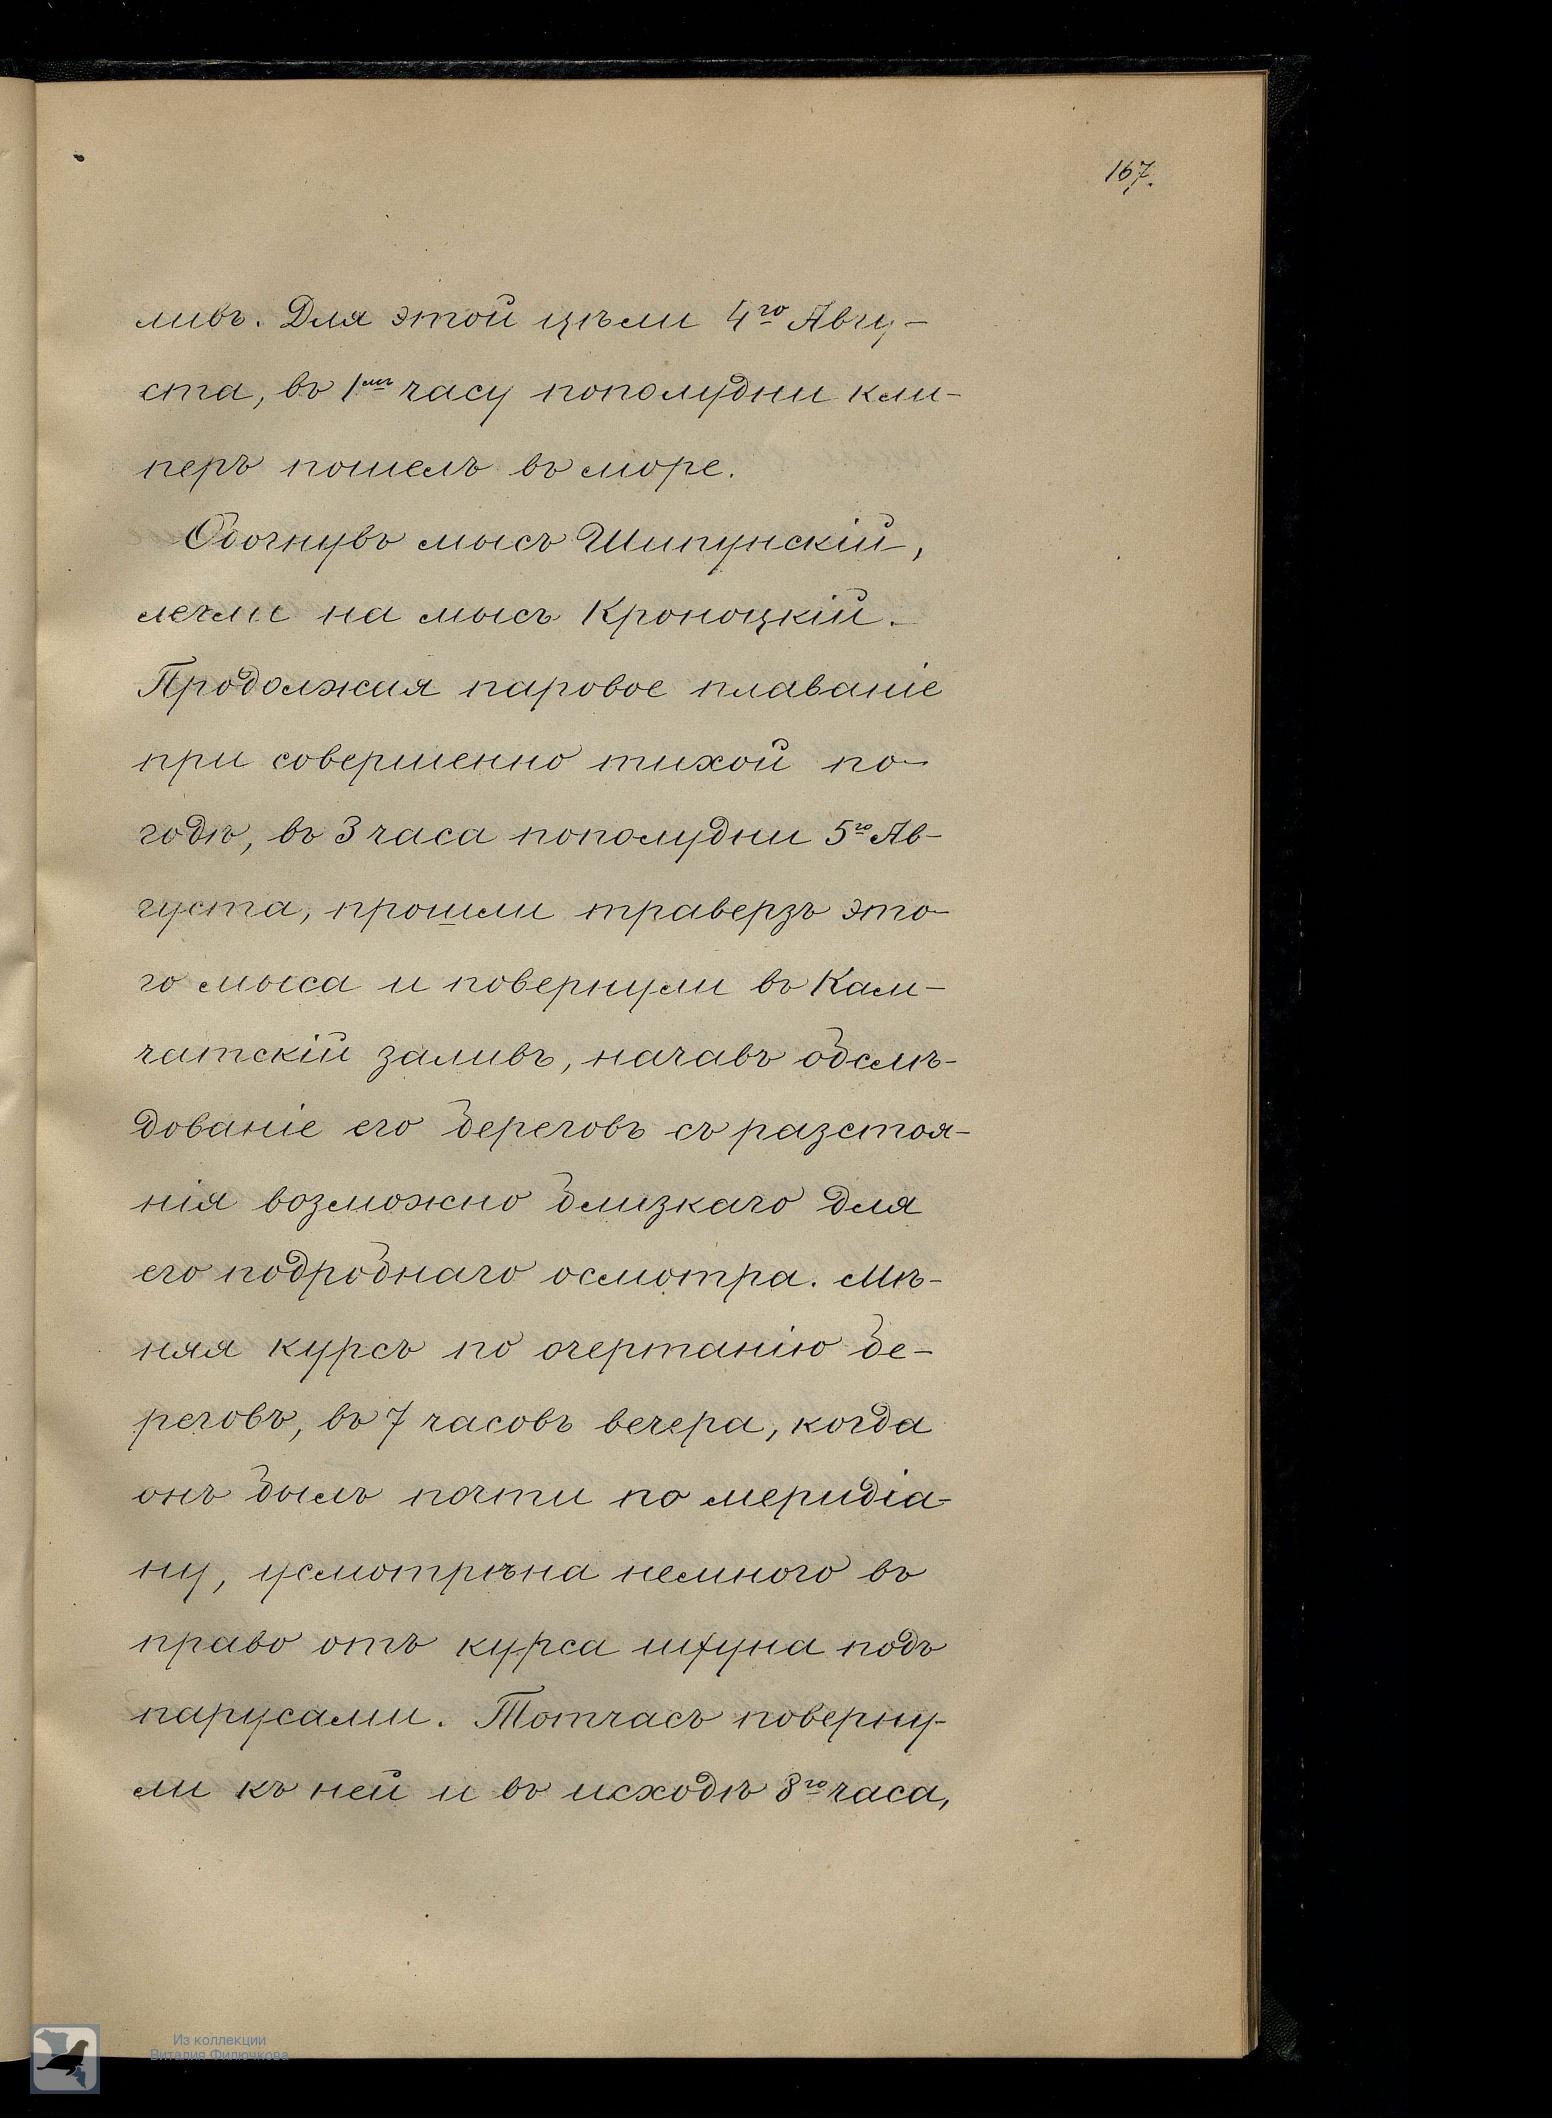 167.
ливъ. Для этой цѣли 4го Авгу-
ста, въ 1мъ часу пополудни кли-
перъ пошелъ въ море.
Обогнувъ мысъ Шипунскій,
легли на мысъ Кроноцкій.
Продолжая паровое плаваніе
при совершенно тихой по-
годѣ, въ 3 часа пополудни 5го Ав-
густа, прошли траверзъ это-
го мыса и повернули въ Кам-
чатскій заливъ, начавъ обслѣ-
дованіе его береговъ съ разстоя-
нія возможно близкаго для
его подробнаго осмотра. Мѣ-
няя курсъ по очертанію бе-
реговъ, въ 7 часовъ вечера, когда
онъ былъ почти по меридіа-
ну, усмотрѣна немного въ
право отъ курса шхуна подъ
парусами. Тотчасъ поверну-
ли къ ней и въ исходѣ 8го часа,
Из коллекции
Виталия Филючкова